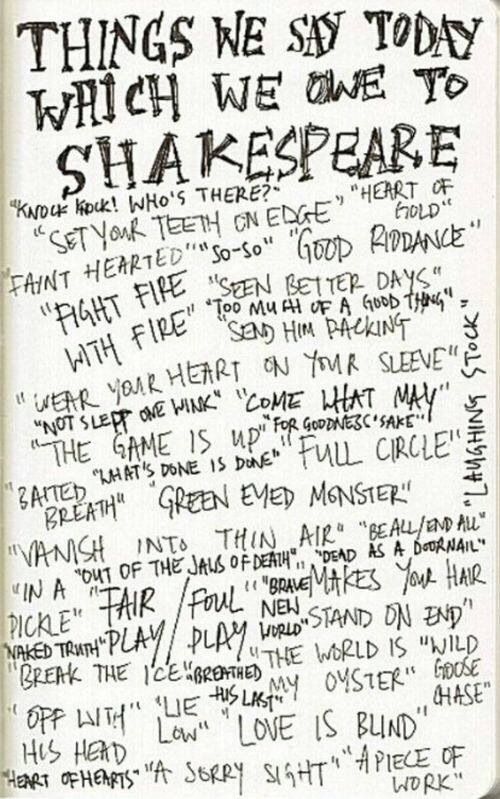 THINGS WE SAY TODAY
WHICH WE OWE TO
SHAKESPEARE
"KNOCK KNOCK! WHO'S THERE?"
"HEART OF
GOLD"
"SET YOUR TEETH ON EDGE"
"FAINT HEARTED" "SO-SO" "GOOD RIDDANCE"
"FIGHT FIRE
WITH FIRE"
"SEEN BETTER DAYS"
"TOO MUCH OF A GOOD THING"
"SEND HIM PACKING
"WEAR YOUR HEART ON YOUR SLEEVE"
"LAUGHING STOCK"
"NOT SLEPT ONE WINK" "COME WHAT MAY"
"THE GAME IS UP" "FOR GOODNESS' SAKE"
"WHAT'S DONE IS DONE" "FULL CIRCLE"
"BAITED
BREATH" "GREEN EYED MONSTER"
"VANISH INTO THIN AIR" "BE ALL/END ALL"
"OUT OF THE JAWS OF DEATH" "DEAD AS A DOORNAIL"
"IN A
PICKLE"
"FAIR / FOUL
PLAY / PLAY
"BRAVE
NEW
WORLD"
MAKES YOUR HAIR
STAND ON END"
"NAKED TRUTH"
"BREAK THE ICE" "BREATHED
HIS LAST"
"THE WORLD IS
MY OYSTER"
"WILD
GOOSE
CHASE"
"OFF WITH
HIS HEAD
"LIE
LOW" "LOVE IS BLIND"
"HEART OF HEARTS" "A SORRY SIGHT" "A PIECE OF
WORK"